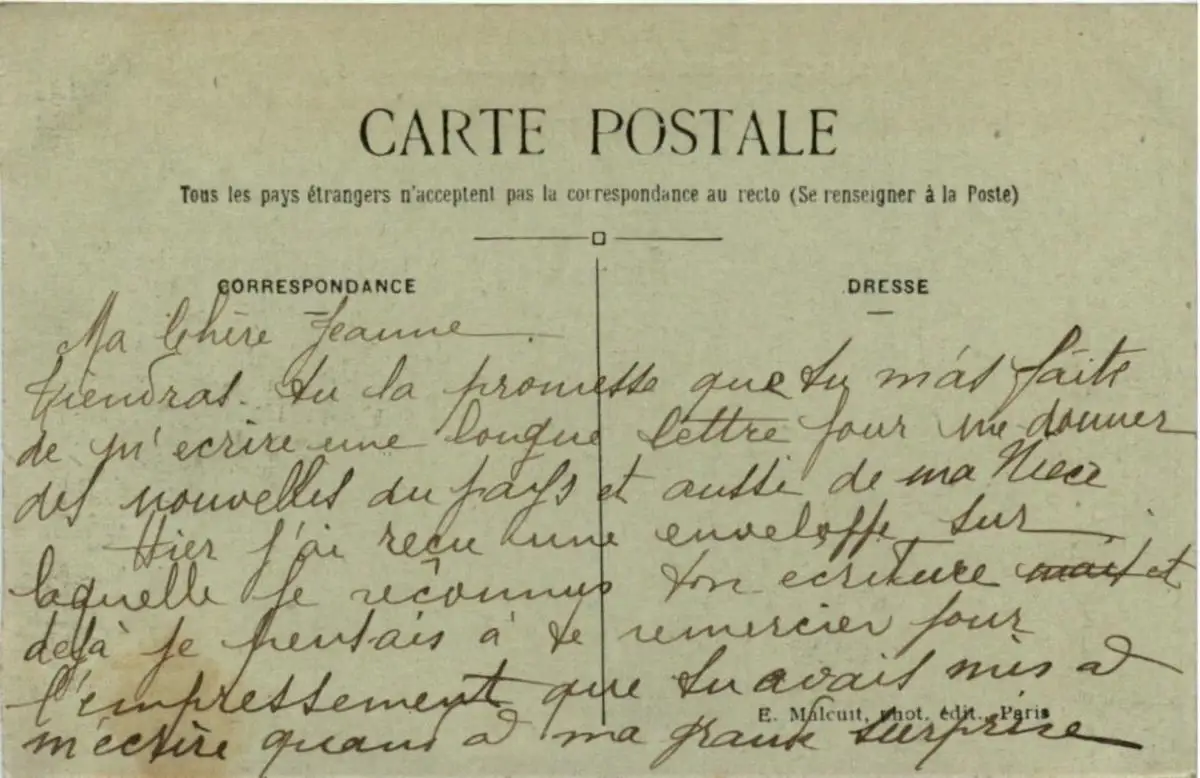 CARTE POSTALE
Tous les pays étrangers n'acceptent pas la correspondance au recto (Se renseigner à la Poste)
CORRESPONDANCE
DRESSE
Ma Chère Jeanne
tiendras tu la promesse que tu m'as faite
de m'ecrire une longue lettre pour me donner
des nouvelles du pays et aussi de ma Niece
Hier j'ai reçu une enveloppe sur
laquelle je reconnus ton ecriture mais et
dejà je pensais à te remercier pour
l'empressement que tu avais mis a
E. Malcuit, phot. édit., Paris
m'ecrire quand a ma grande surprise